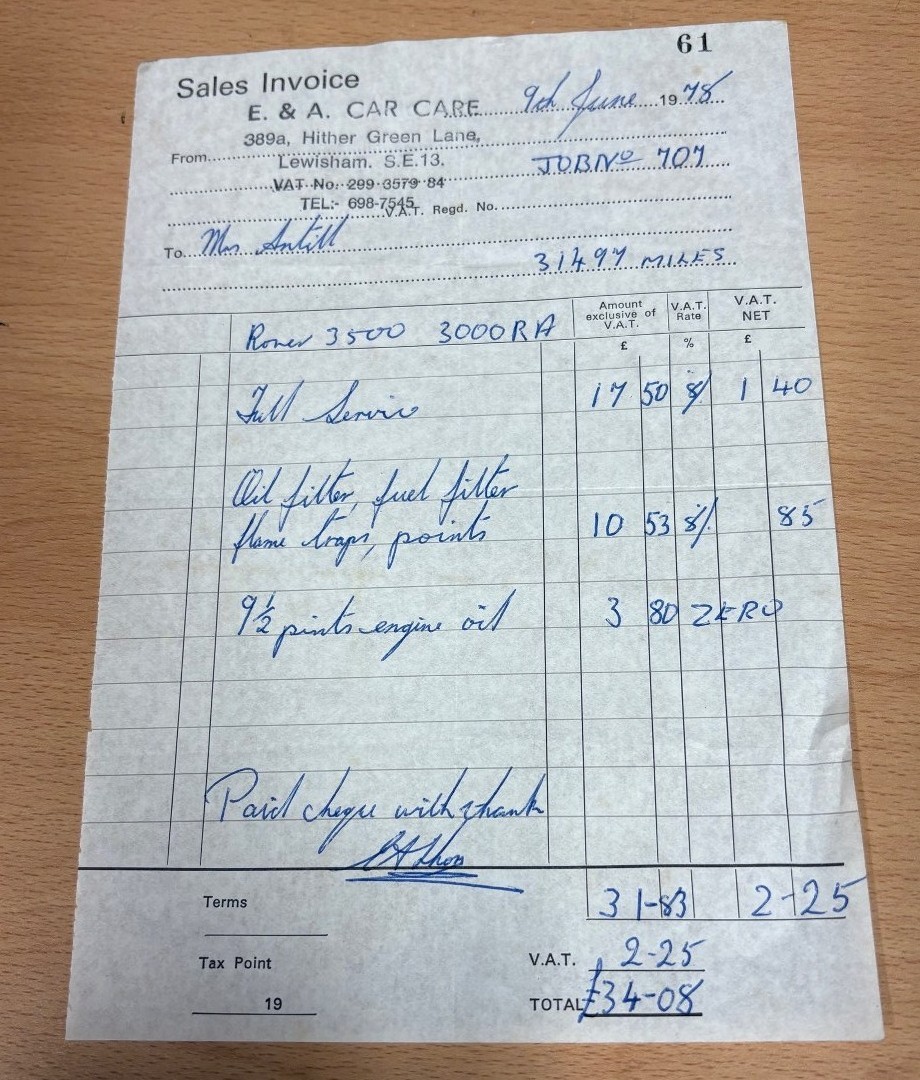 61
Sales Invoice
E. & A. CAR CARE 9th June 1978
389a, Hither Green Lane,
From Lewisham. S.E.13. JOB No 707
VAT No. 299 3579 84
TEL:- 698-7545 V.A.T. Regd. No.
To Mrs Antill
31497 MILES
Rover 3500 3000RA Amount exclusive of V.A.T. £ V.A.T. Rate % V.A.T. NET £
Full Service 17 50 8% 1 40
Oil filter, fuel filter
flame traps, points 10 53 8% 85
9½ pints engine oil 3 80 ZERO
Paid cheque with thank
Terms 31-83 2-25
Tax Point V.A.T. 2-25
19 TOTAL £34-08